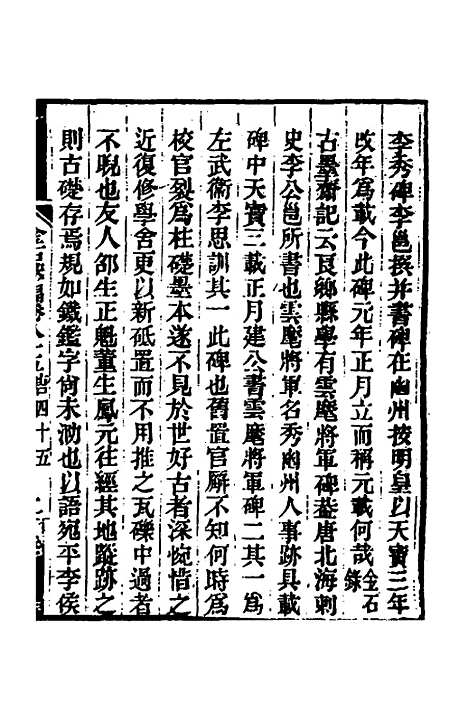 李秀碑李邕撰并書碑在幽州按明皇以天寶三年
改年為載今此碑元年正月立而稱元載何哉金石錄
古墨齋記云良鄉縣學有雲麾將軍碑葢唐北海刺
史李公邕所書也雲麾將軍名秀幽州人事跡具載
碑中天寶三載正月建公書雲麾將軍碑二其一為
左武衛李思訓其一此碑也舊置官廨不知何時為
校官裂為柱礎墨本遂不見於世好古者深惋惜之
近復修學舍更以新砥置而不用推之瓦礫中過者
不睨也友人邵生正魁董生鳳元往經其地蹤跡之
則古礎存焉規如鐵鑑字尚未泐也以語宛平李侯
四十五